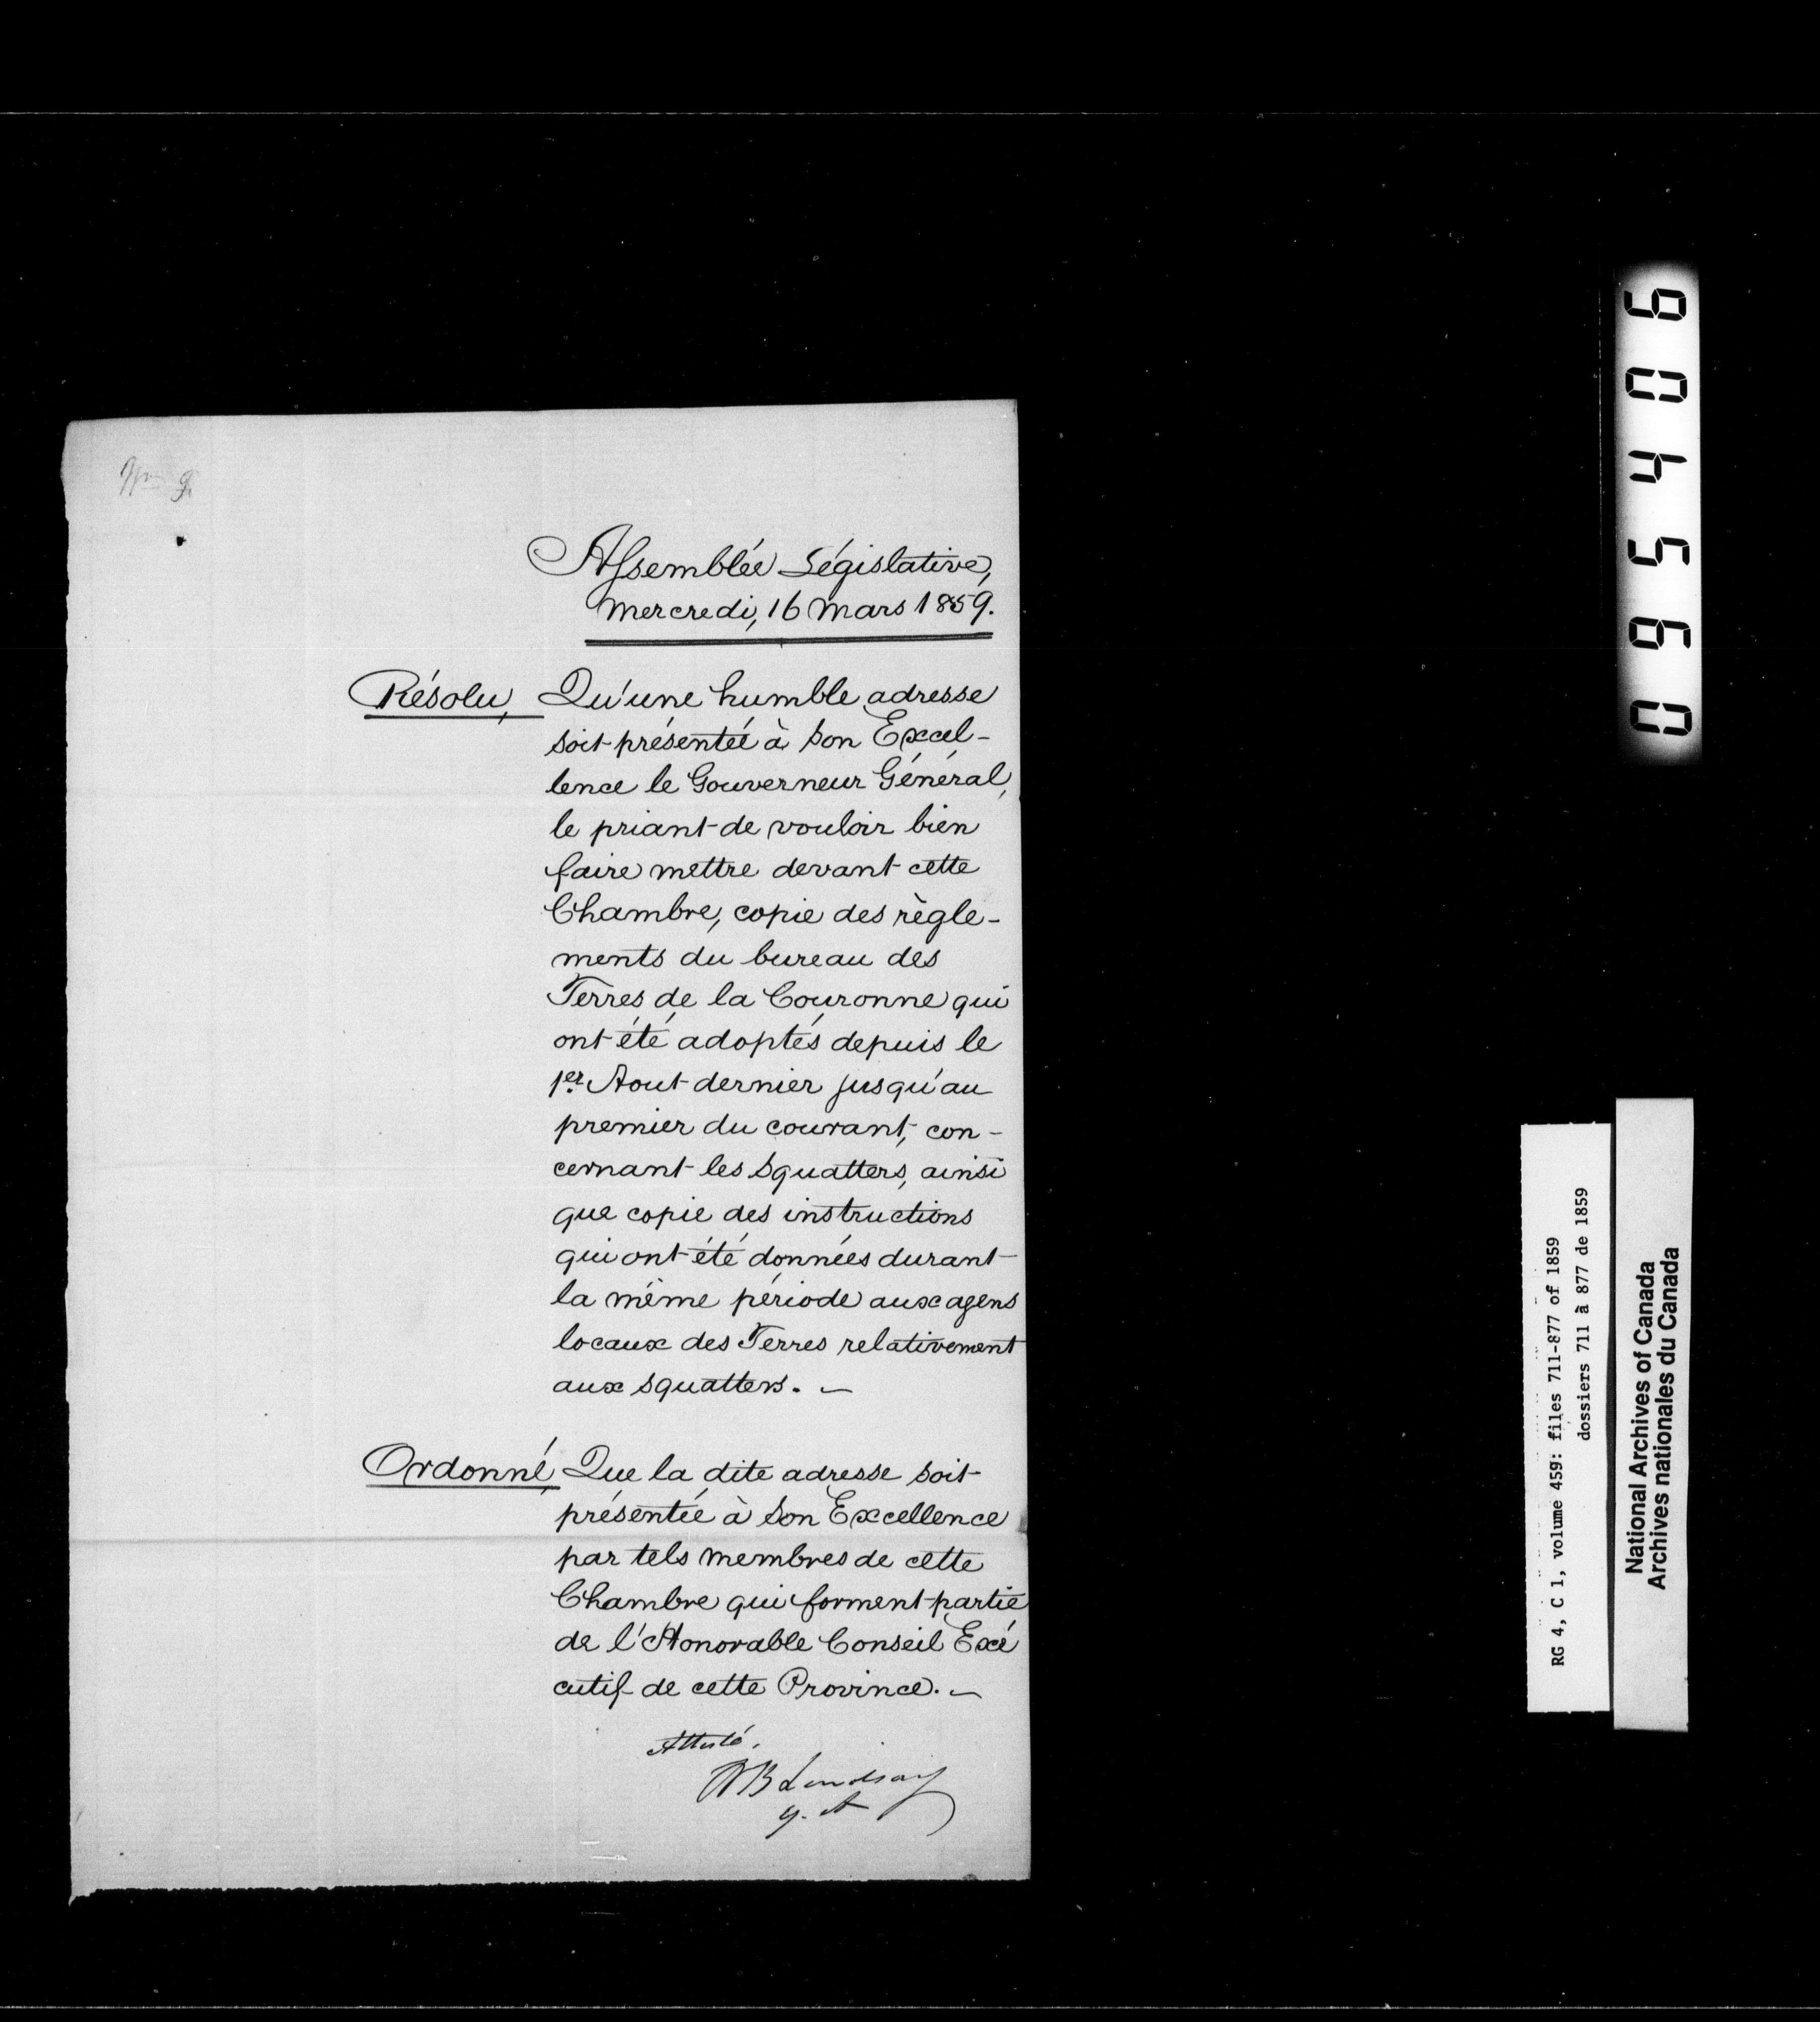 Assemblée Législative,
Mercredi, 16 Mars 1859.
Résolu, Qu'une humble adresse
soit présentée à Son Excel-
lence le Gouverneur Général,
le priant de vouloir bien
faire mettre devant cette
Chambre, copie des règle-
ments du bureau des
Terres de la Couronne qui
ont été adoptés depuis le
1er. Aout dernier jusqu'au
premier du courant, con-
cernant les Squatters, ainsi
que copie des instructions
qui ont été données durant
la même période aux agens
locaux des Terres relativement
aux squatters. —
Ordonné, Que la dite adresse soit
présentée à Son Excellence
par tels membres de cette
Chambre qui forment partie
de l'Honorable Conseil Exé
cutif de cette Province. —
Attesté.
WB Lindsay
G. A
095406
RG 4, C 1, volume 459: files 711-877 of 1859
dossiers 711 à 877 de 1859
National Archives of Canada
Archives nationales du Canada